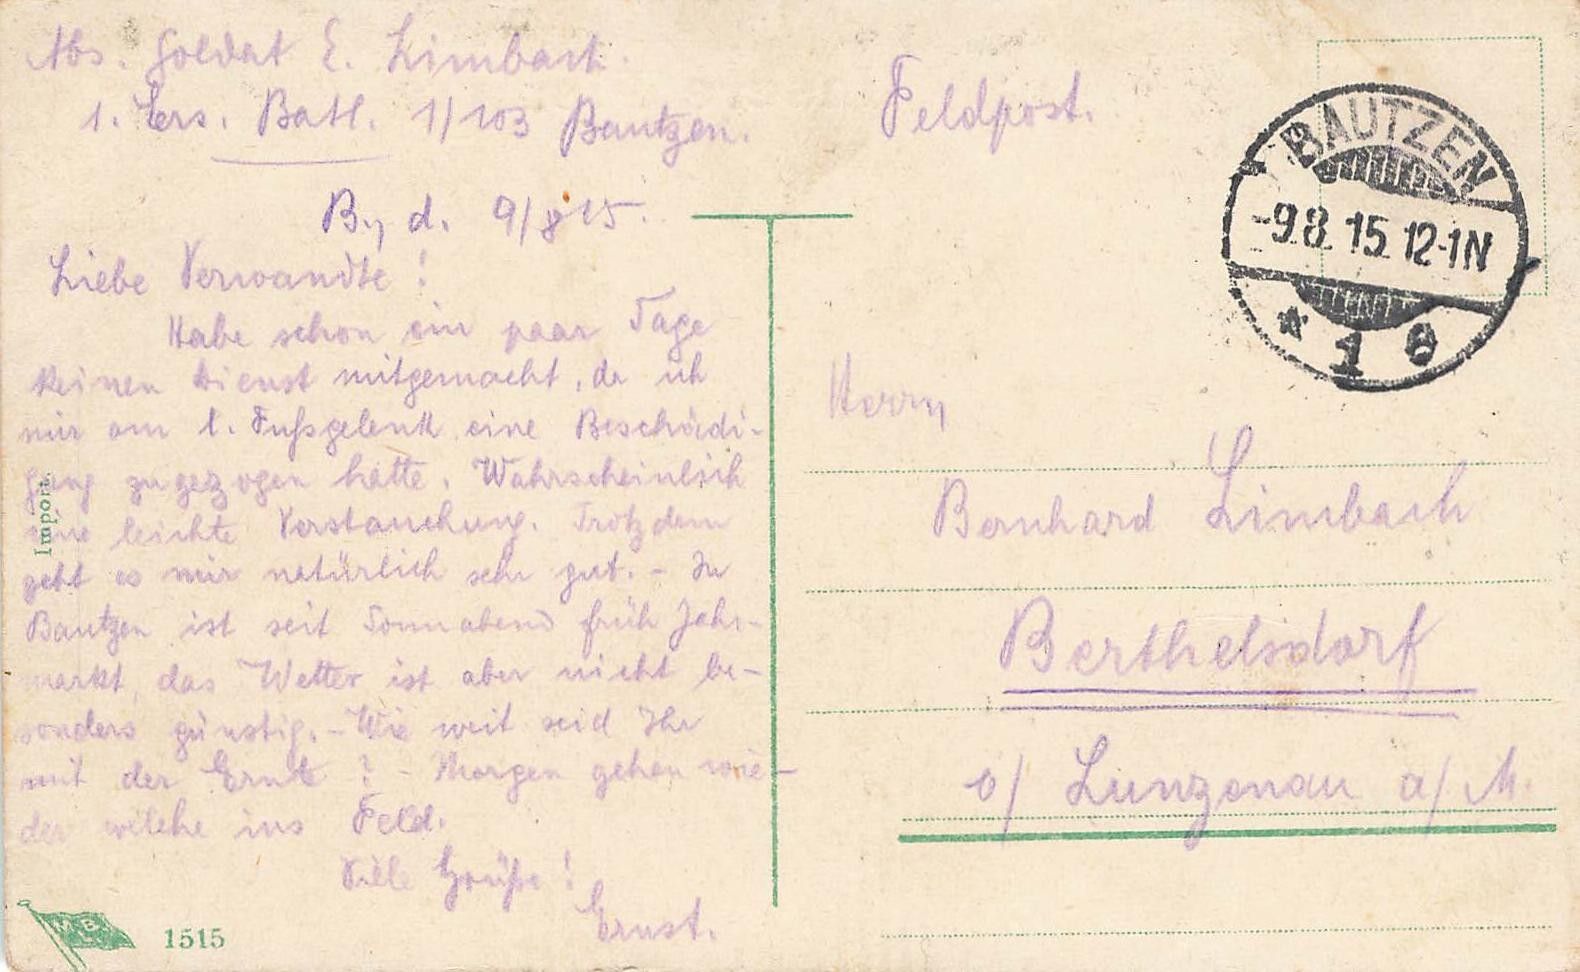 Abs. Soldat E. Limbach.
1. Ers. Batl. 1/103 Bautzen.
B., d. 9/8 15.
Liebe Verwandte!
Habe schon ein paar Tage
keinen Dienst mitgemacht, da ich
mir am l. Fußgelenk eine Beschädi-
gung zugezogen hatte. Wahrscheinlich
eine leichte Verstauchung. Trotzdem
geht es mir natürlich sehr gut. - In
Bautzen ist seit Sonnabend früh Jahr-
markt, das Wetter ist aber nicht be-
sonders günstig. - Wie weit seid Ihr
mit der Ernte? - Morgen gehen wie-
der welche ins Feld.
Viele Grüße!
Ernst.
Import.
MBL
1515
Feldpost.
BAUTZEN
-9.8.15.12-1N
* 1
Herrn
Bernhard Limbach
Berthelsdorf
b/ Lunzenau a/ M.